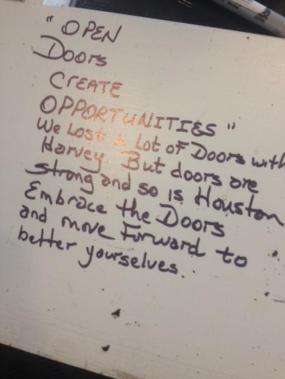 "OPEN
Doors
CREATE
OPPORTUNITIES"
We Lost a lot of Doors with
Harvey. But doors are
strong and so is Houston
Embrace the Doors
and move Forward to
better yourselves.